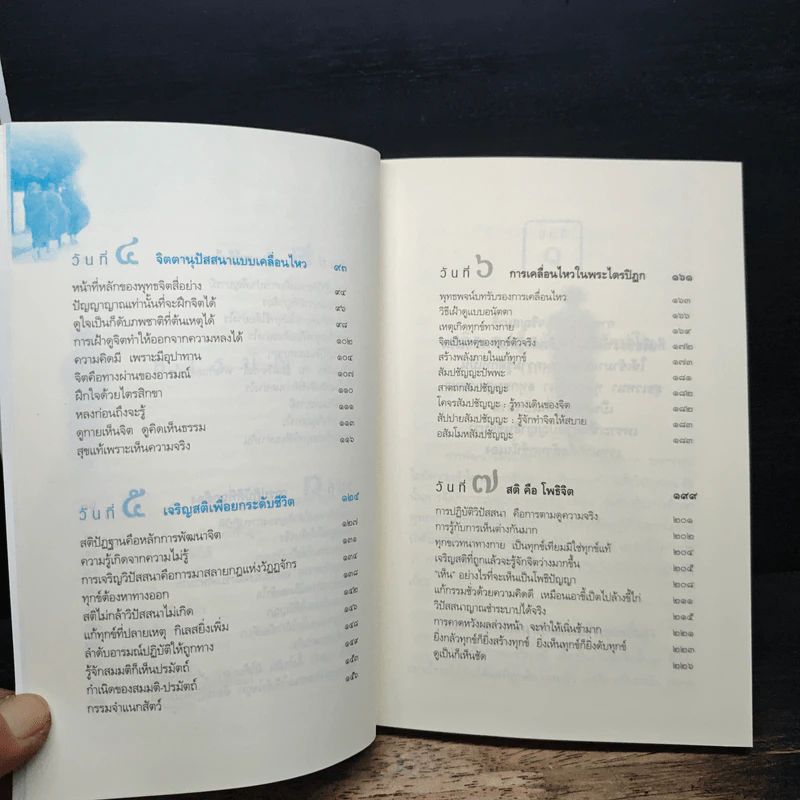 วันที่ ๔ จิตตานุปัสสนาแบบเคลื่อนไหว ๙๓
หน้าที่หลักของพุทธจิตสี่อย่าง ๙๔
ปัญญาญาณเท่านั้นที่จะฝึกจิตได้ ๙๖
ดูใจเป็นก็ดับภพชาติที่ต้นเหตุได้ ๙๘
การเฝ้าดูจิตทำให้ออกจากความหลงได้ ๑๐๒
ความคิดมี เพราะมีอุปาทาน ๑๐๔
จิตคือทางผ่านของอารมณ์ ๑๐๗
ฝึกใจด้วยไตรสิกขา ๑๑๐
หลงก่อนถึงจะรู้ ๑๑๑
ดูกายเห็นจิต ดูคิดเห็นธรรม ๑๑๓
สุขแท้เพราะเห็นความจริง ๑๑๖
วันที่ ๕ เจริญสติเพื่อยกระดับชีวิต ๑๒๔
สติปัฏฐานคือหลักการพัฒนาจิต ๑๒๗
ความรู้เกิดจากความไม่รู้ ๑๓๑
การเจริญวิปัสสนาคือการมาสลายกฎแห่งวัฏฏจักร ๑๓๔
ทุกข์ต้องหาทางออก ๑๓๘
สติไม่กล้าวิปัสสนาไม่เกิด ๑๔๖
แก้ทุกข์ที่ปลายเหตุ กิเลสยิ่งเพิ่ม ๑๔๘
ลำดับอารมณ์ปฏิบัติให้ถูกทาง ๑๔๙
รู้จักสมมติก็เห็นปรมัตถ์ ๑๕๓
กำเนิดของสมมติ-ปรมัตถ์ ๑๕๖
กรรมจำแนกสัตว์
วันที่ ๖ การเคลื่อนไหวในพระไตรปิฎก ๑๖๑
พุทธพจน์บทรับรองการเคลื่อนไหว ๑๖๓
วิธีเฝ้าดูแบบอนัตตา ๑๖๖
เหตุเกิดทุกข์ทางกาย ๑๖๙
จิตเป็นเหตุของทุกข์ตัวจริง ๑๗๒
สร้างพลังภายในแก้ทุกข์ ๑๗๓
สัมปชัญญะบัพพะ ๑๘๑
สาตถกสัมปชัญญะ ๑๘๒
โคจรสัมปชัญญะ : รู้ทางเดินของจิต ๑๘๒
สัปปายสัมปชัญญะ : รู้จักทำจิตให้สบาย ๑๘๓
อสัมโมหสัมปชัญญะ
วันที่ ๗ สติ คือ โพธิจิต ๑๙๙
การปฏิบัติวิปัสสนา คือการตามดูความจริง ๒๐๑
การรู้กับการเห็นต่างกันมาก ๒๐๒
ทุกขเวทนาทางกาย เป็นทุกข์เทียมมิใช่ทุกข์แท้ ๒๐๔
เจริญสติที่ถูกแล้วจะรู้จักจิตว่างมากขึ้น ๒๐๕
"เห็น" อย่างไรที่จะเห็นเป็นโพธิปัญญา ๒๐๘
แก้กรรมชั่วด้วยความคิดดี เหมือนเอาขี้เป็ดไปล้างขี้ไก่ ๒๑๑
วิปัสสนาญาณชำระบาปได้จริง ๒๑๕
การคาดหวังผลล่วงหน้า จะทำให้เนิ่นช้ามาก ๒๒๑
ยิ่งกลัวทุกข์ก็ยิ่งสร้างทุกข์ ยิ่งเห็นทุกข์ก็ยิ่งดับทุกข์ ๒๒๓
ดูเป็นก็เห็นชัด ๒๒๖